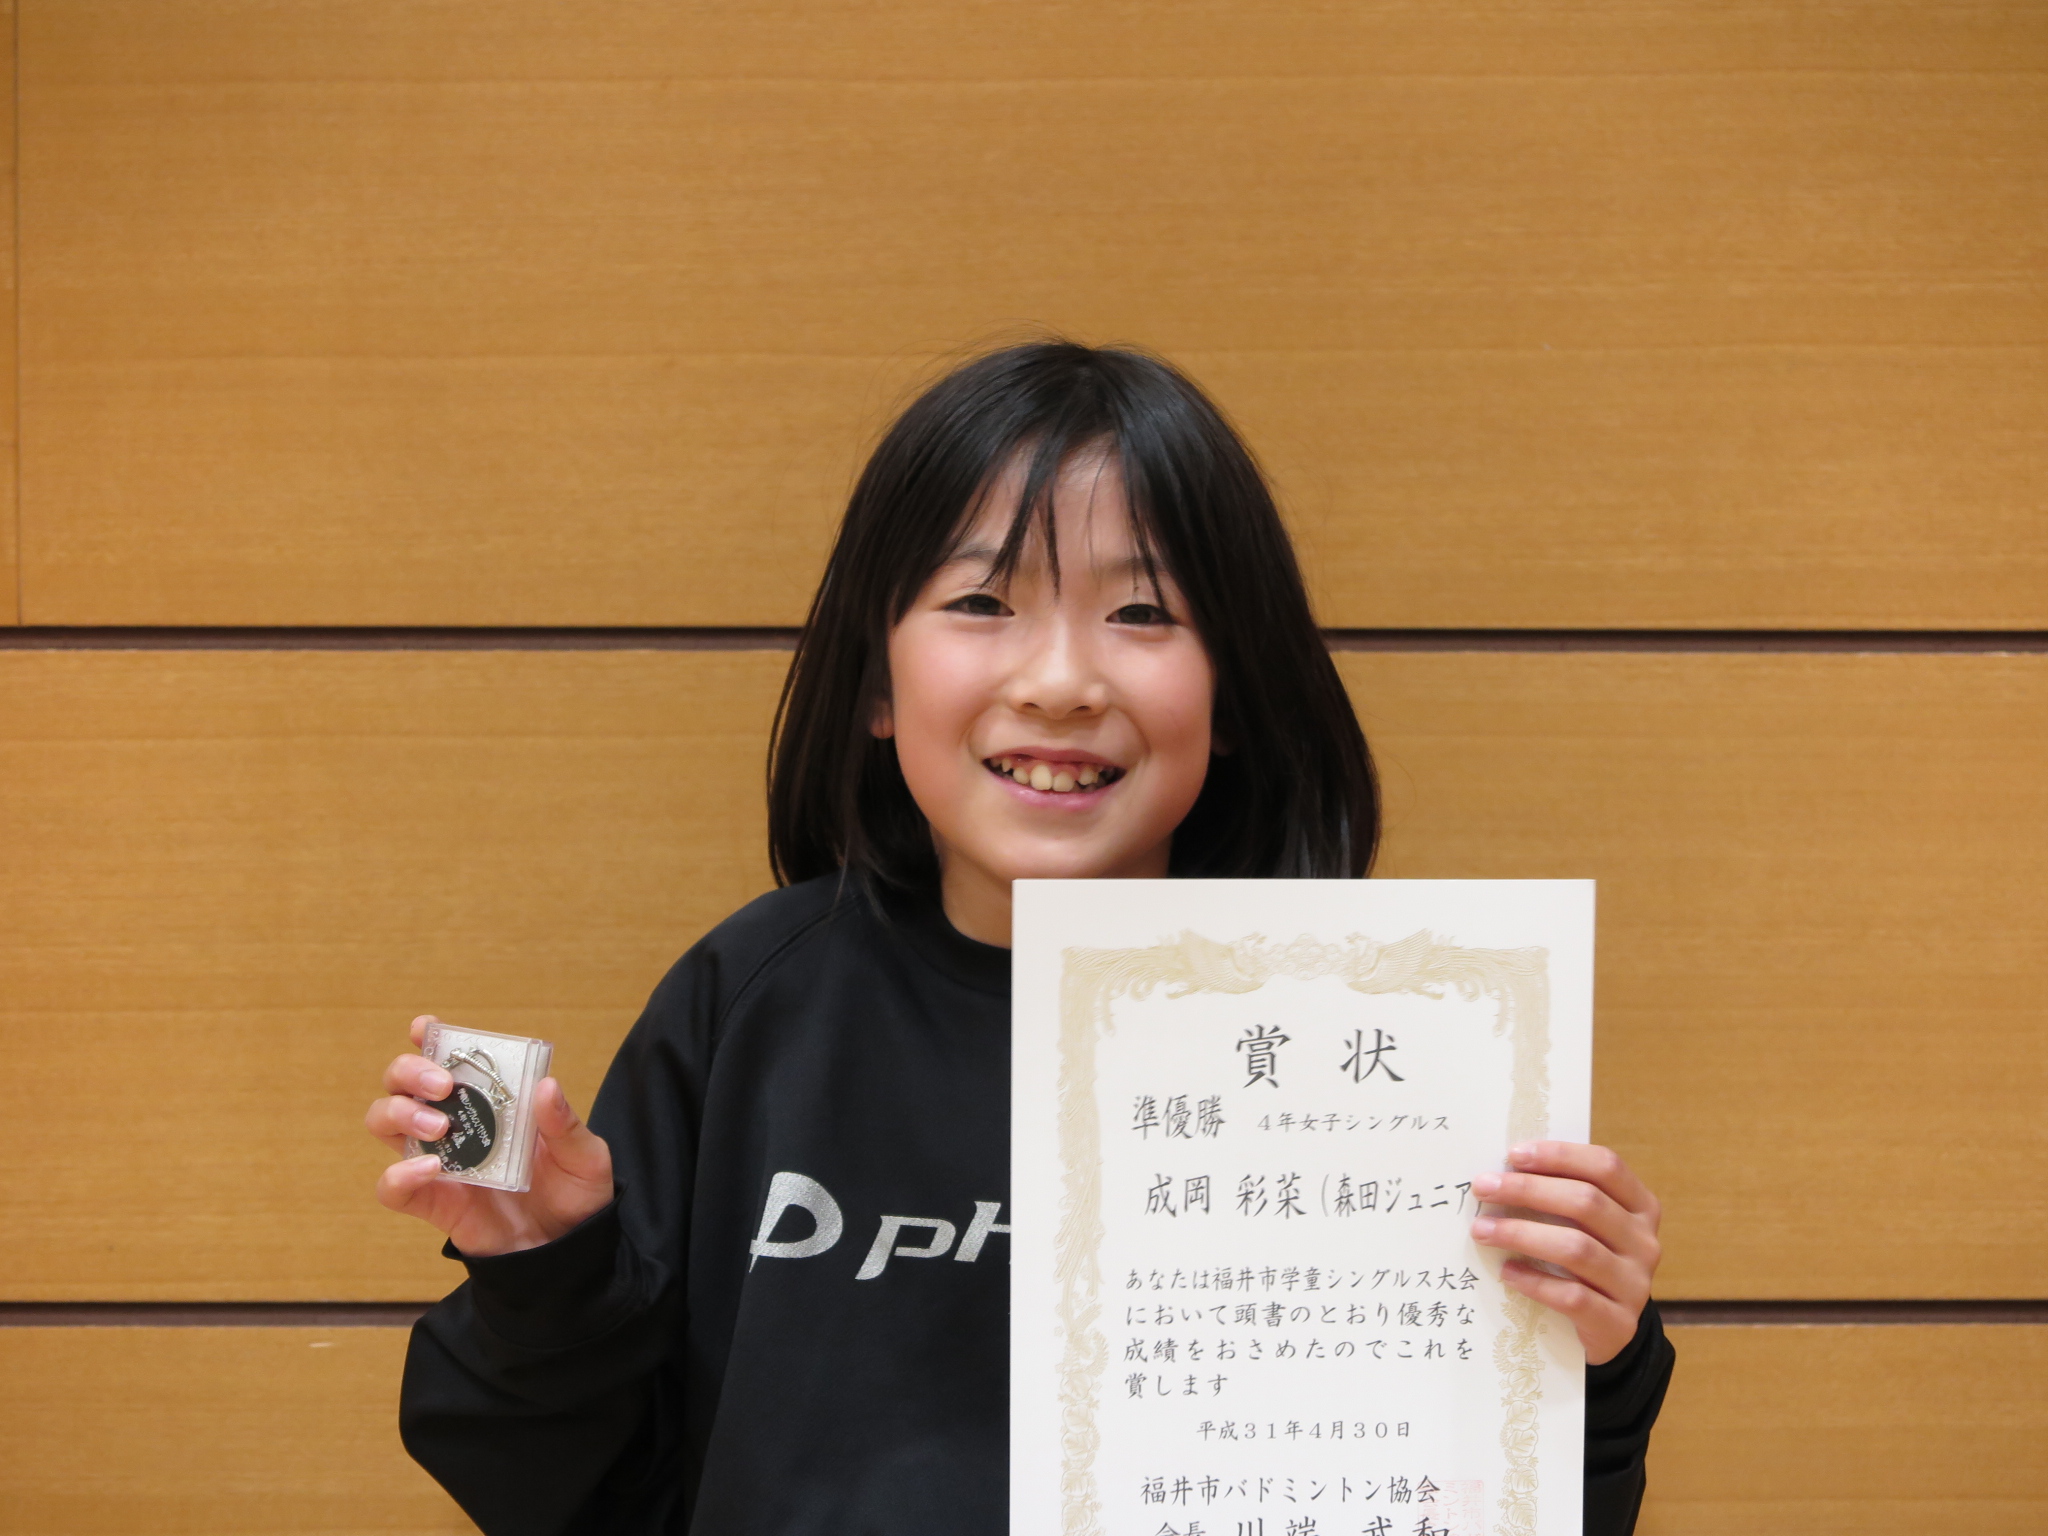 賞状
準優勝 4年女子シングルス
成岡 彩菜(森田ジュニア)
あなたは福井市学童シングルス大会
において頭書のとおり優秀な
成績をおさめたのでこれを
賞します
平成31年4月30日
福井市バドミントン協会
会長 川端 武和
4年女子